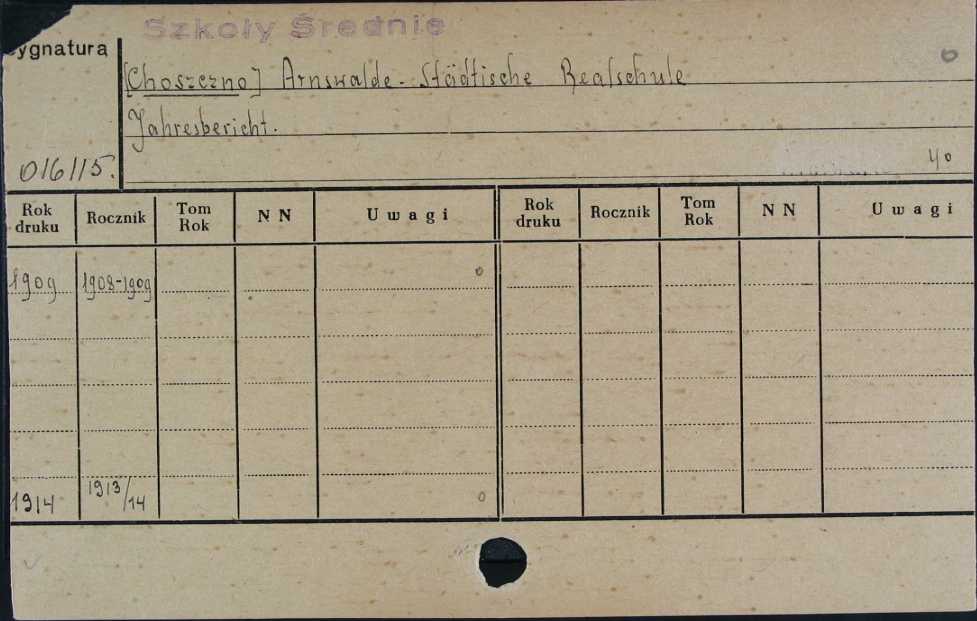 Szkoły Średnie
Sygnatura
[Choszczno] Arnswalde - Städtische Realschule
Jahresbericht.
016115.
4o
Rok druku Rocznik Tom Rok N N Uwagi Rok druku Rocznik Tom Rok N N Uwagi
1909 1908-1909 o
1914 1913/14 o